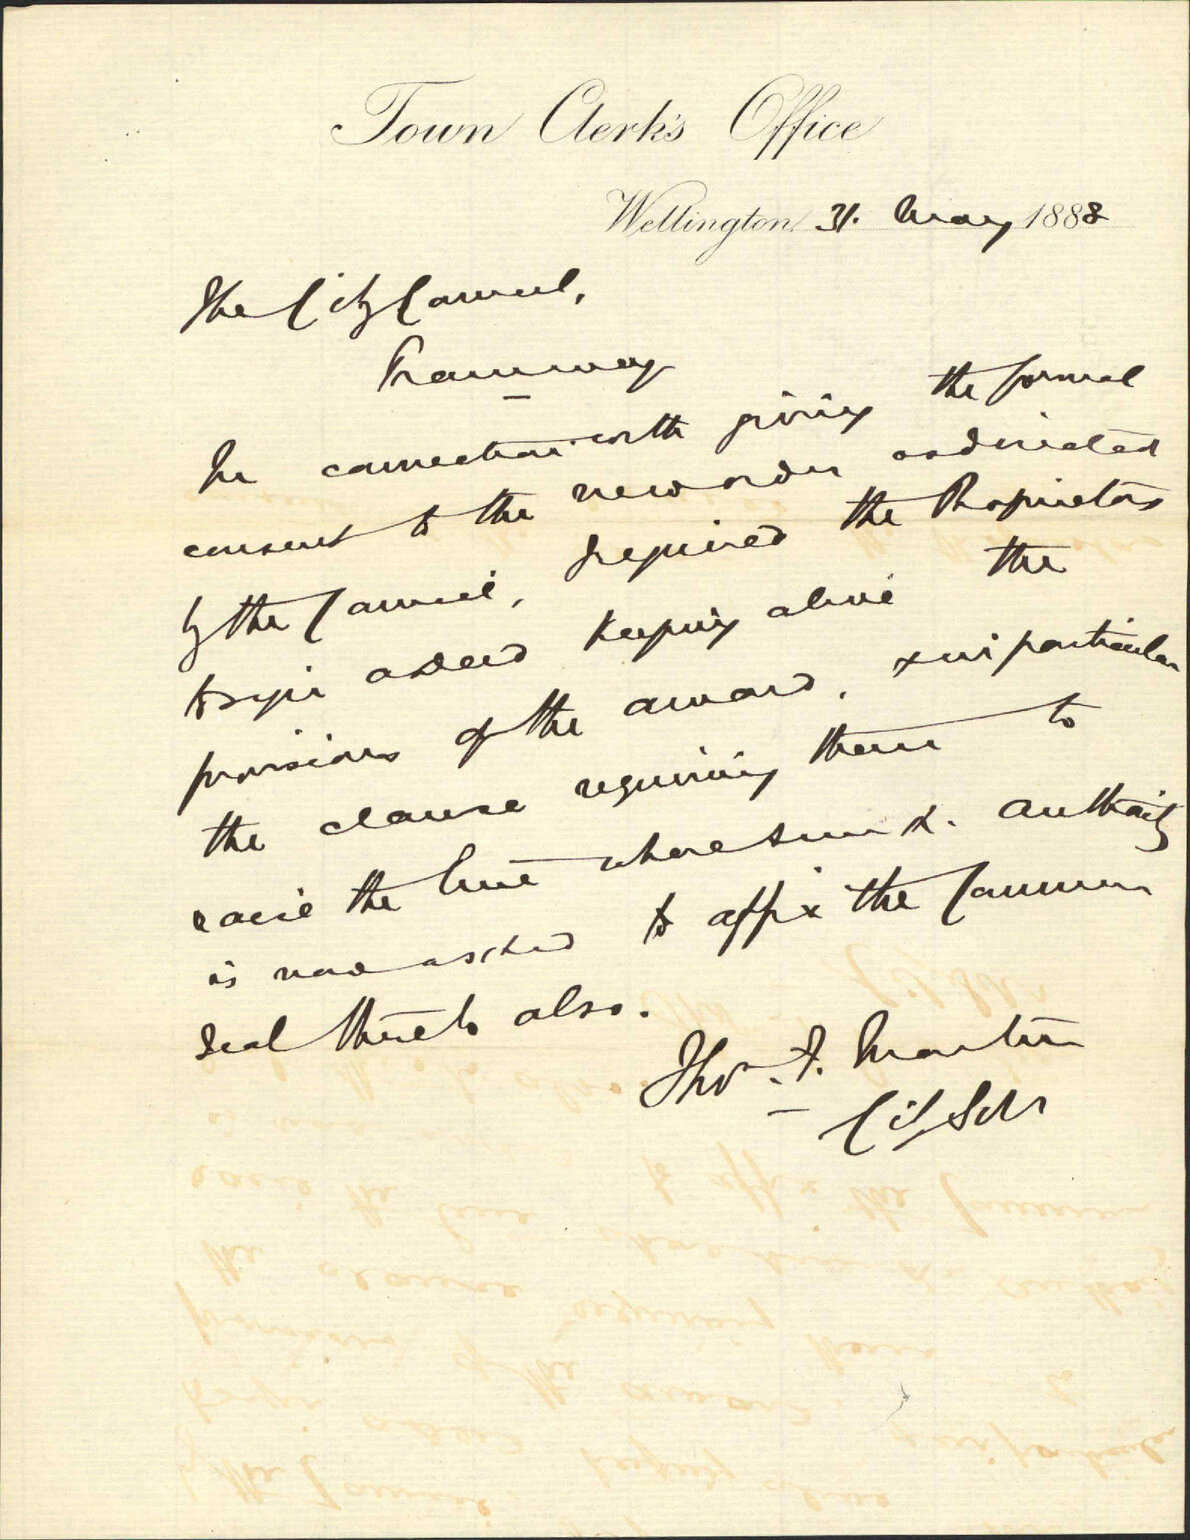 Town Clerk's Office
Wellington 31. May 1888
The City Council,
Tramway
In connection with giving the formal
consent to the new order as directed
by the Council, I required the Proprietors
to sign a deed keeping alive the
provisions of the award, & in particular
the clause requiring them to
raise the line where sunk. Authority
is now asked to affix the Common
Seal thereto also.
Thos. F. Martin
City Solr